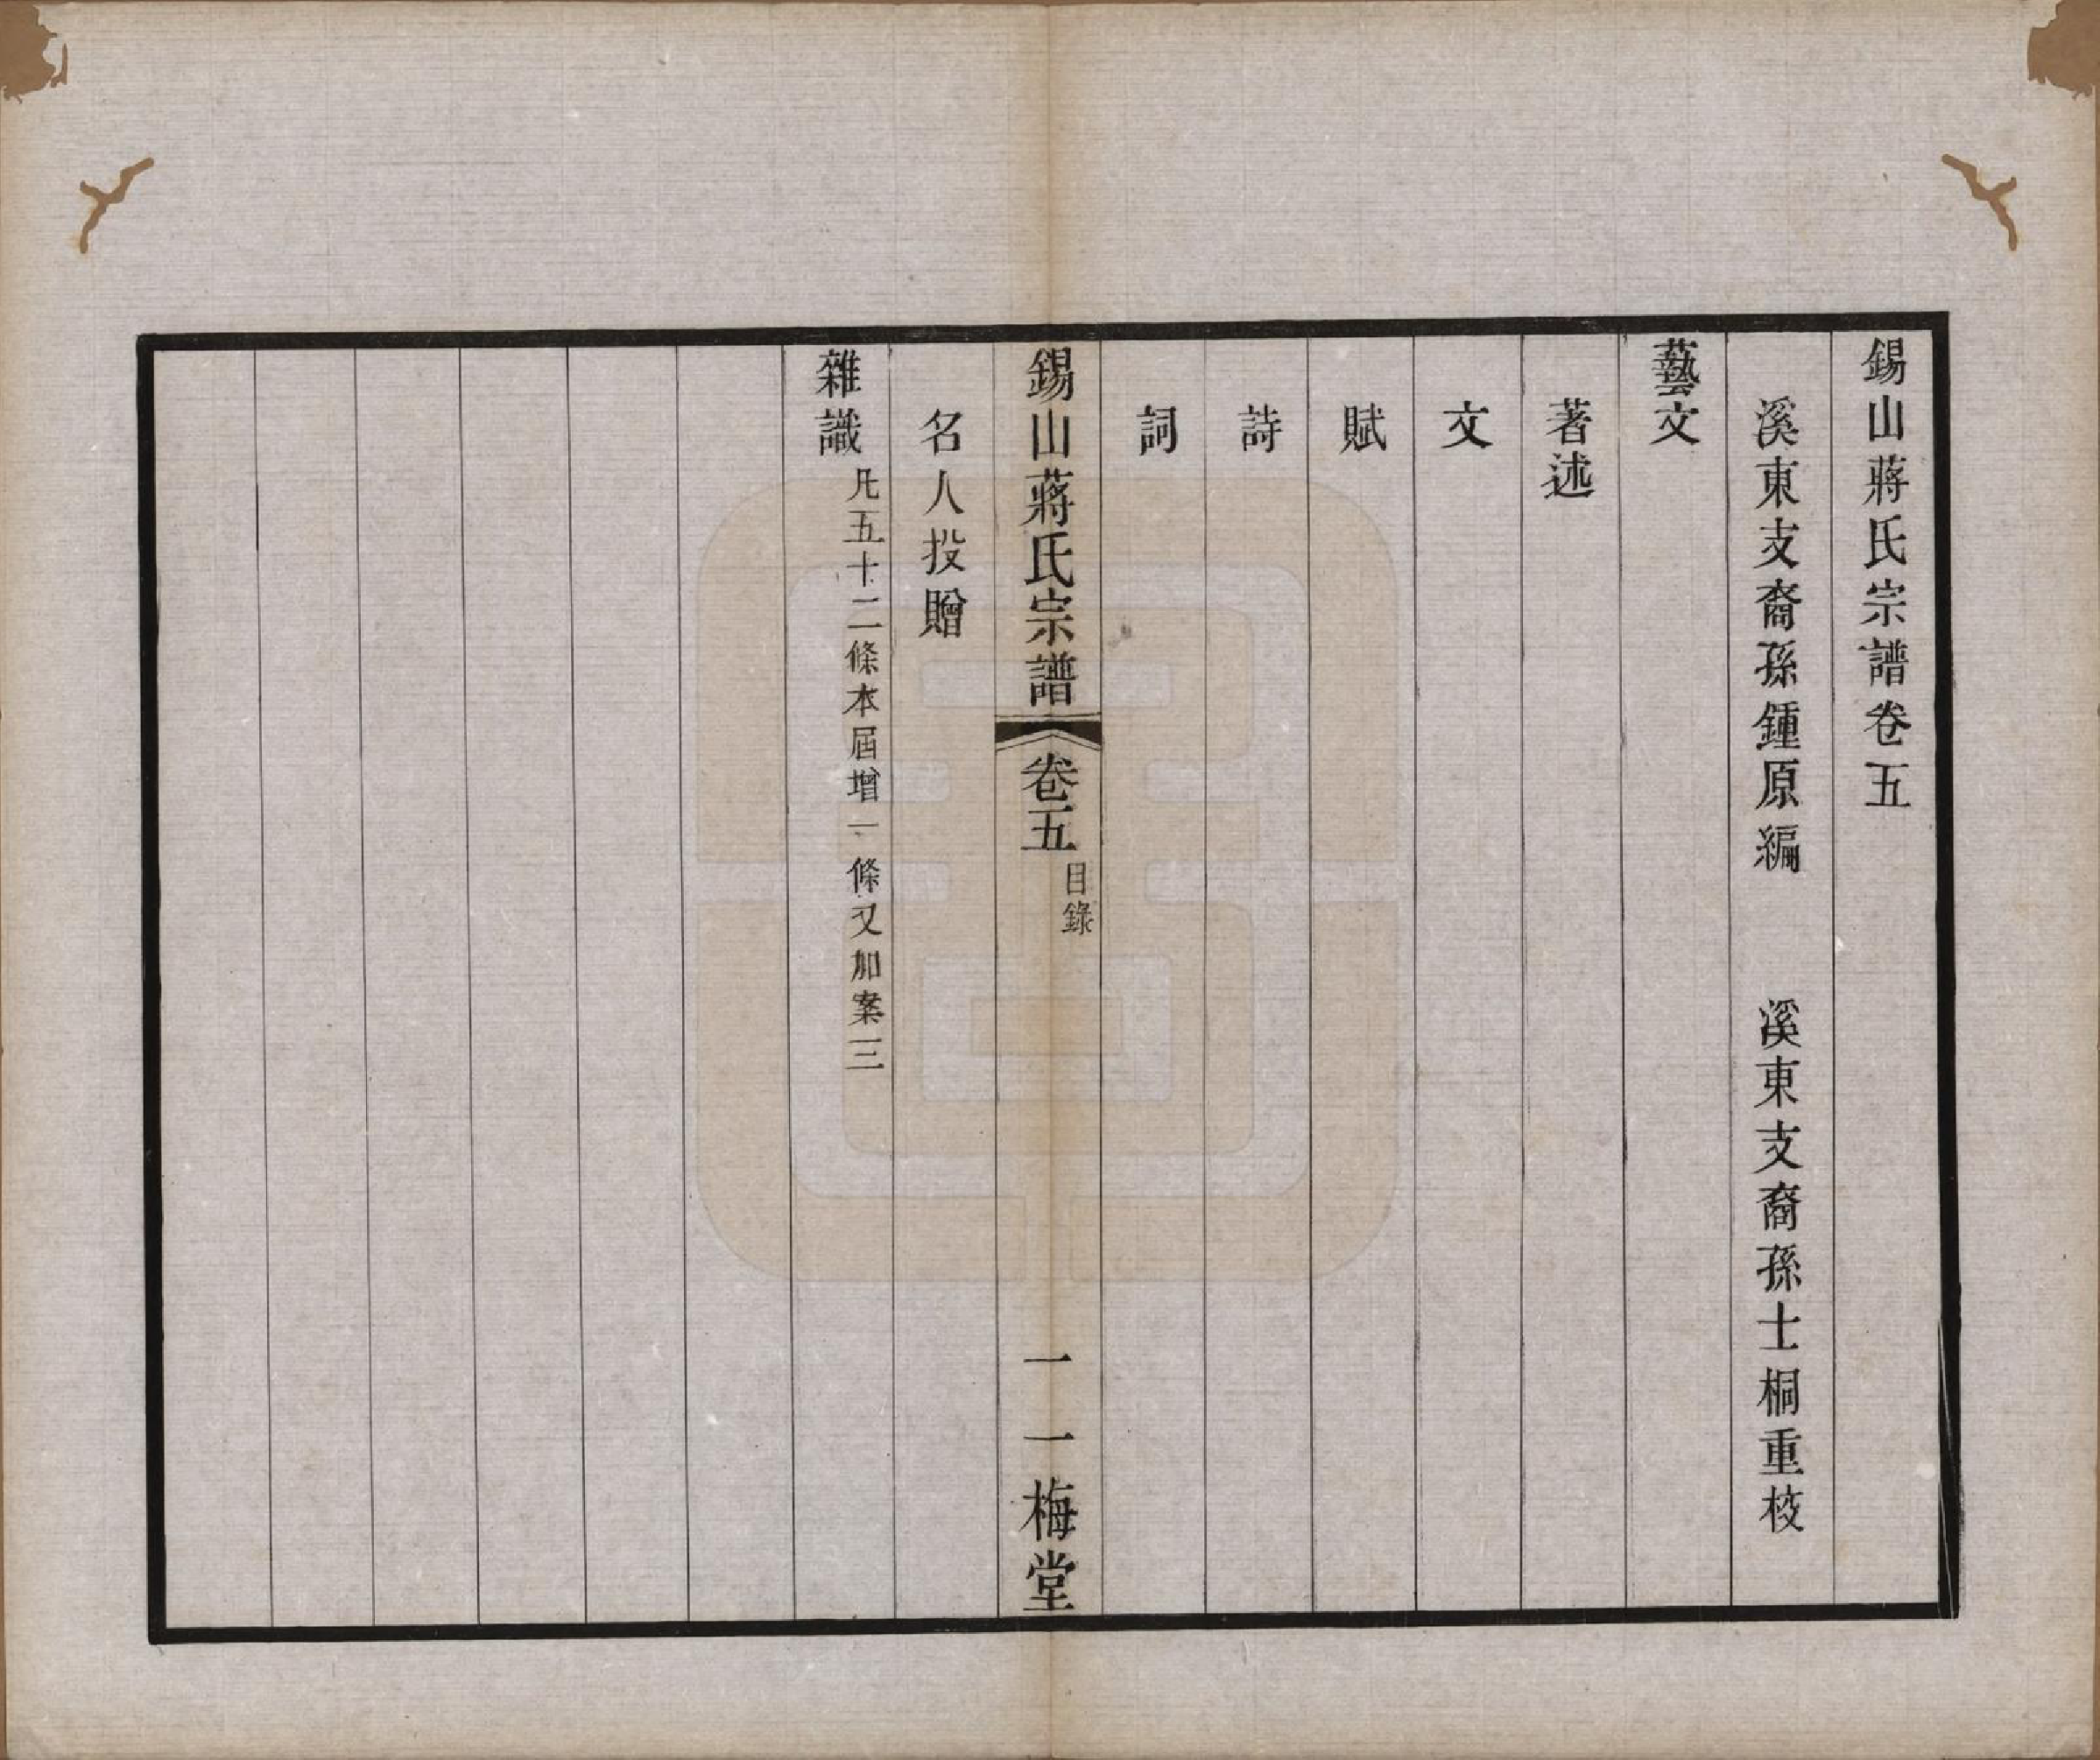 錫山蔣氏宗譜卷五
溪東支裔孫鍾原編　溪東支裔孫士桐重校
藝文
著述
文
賦
詩
詞
錫山蔣氏宗譜　卷五　目錄　一　一梅堂
名人投贈
雜識　凡五十二條本屆增一條又加案三